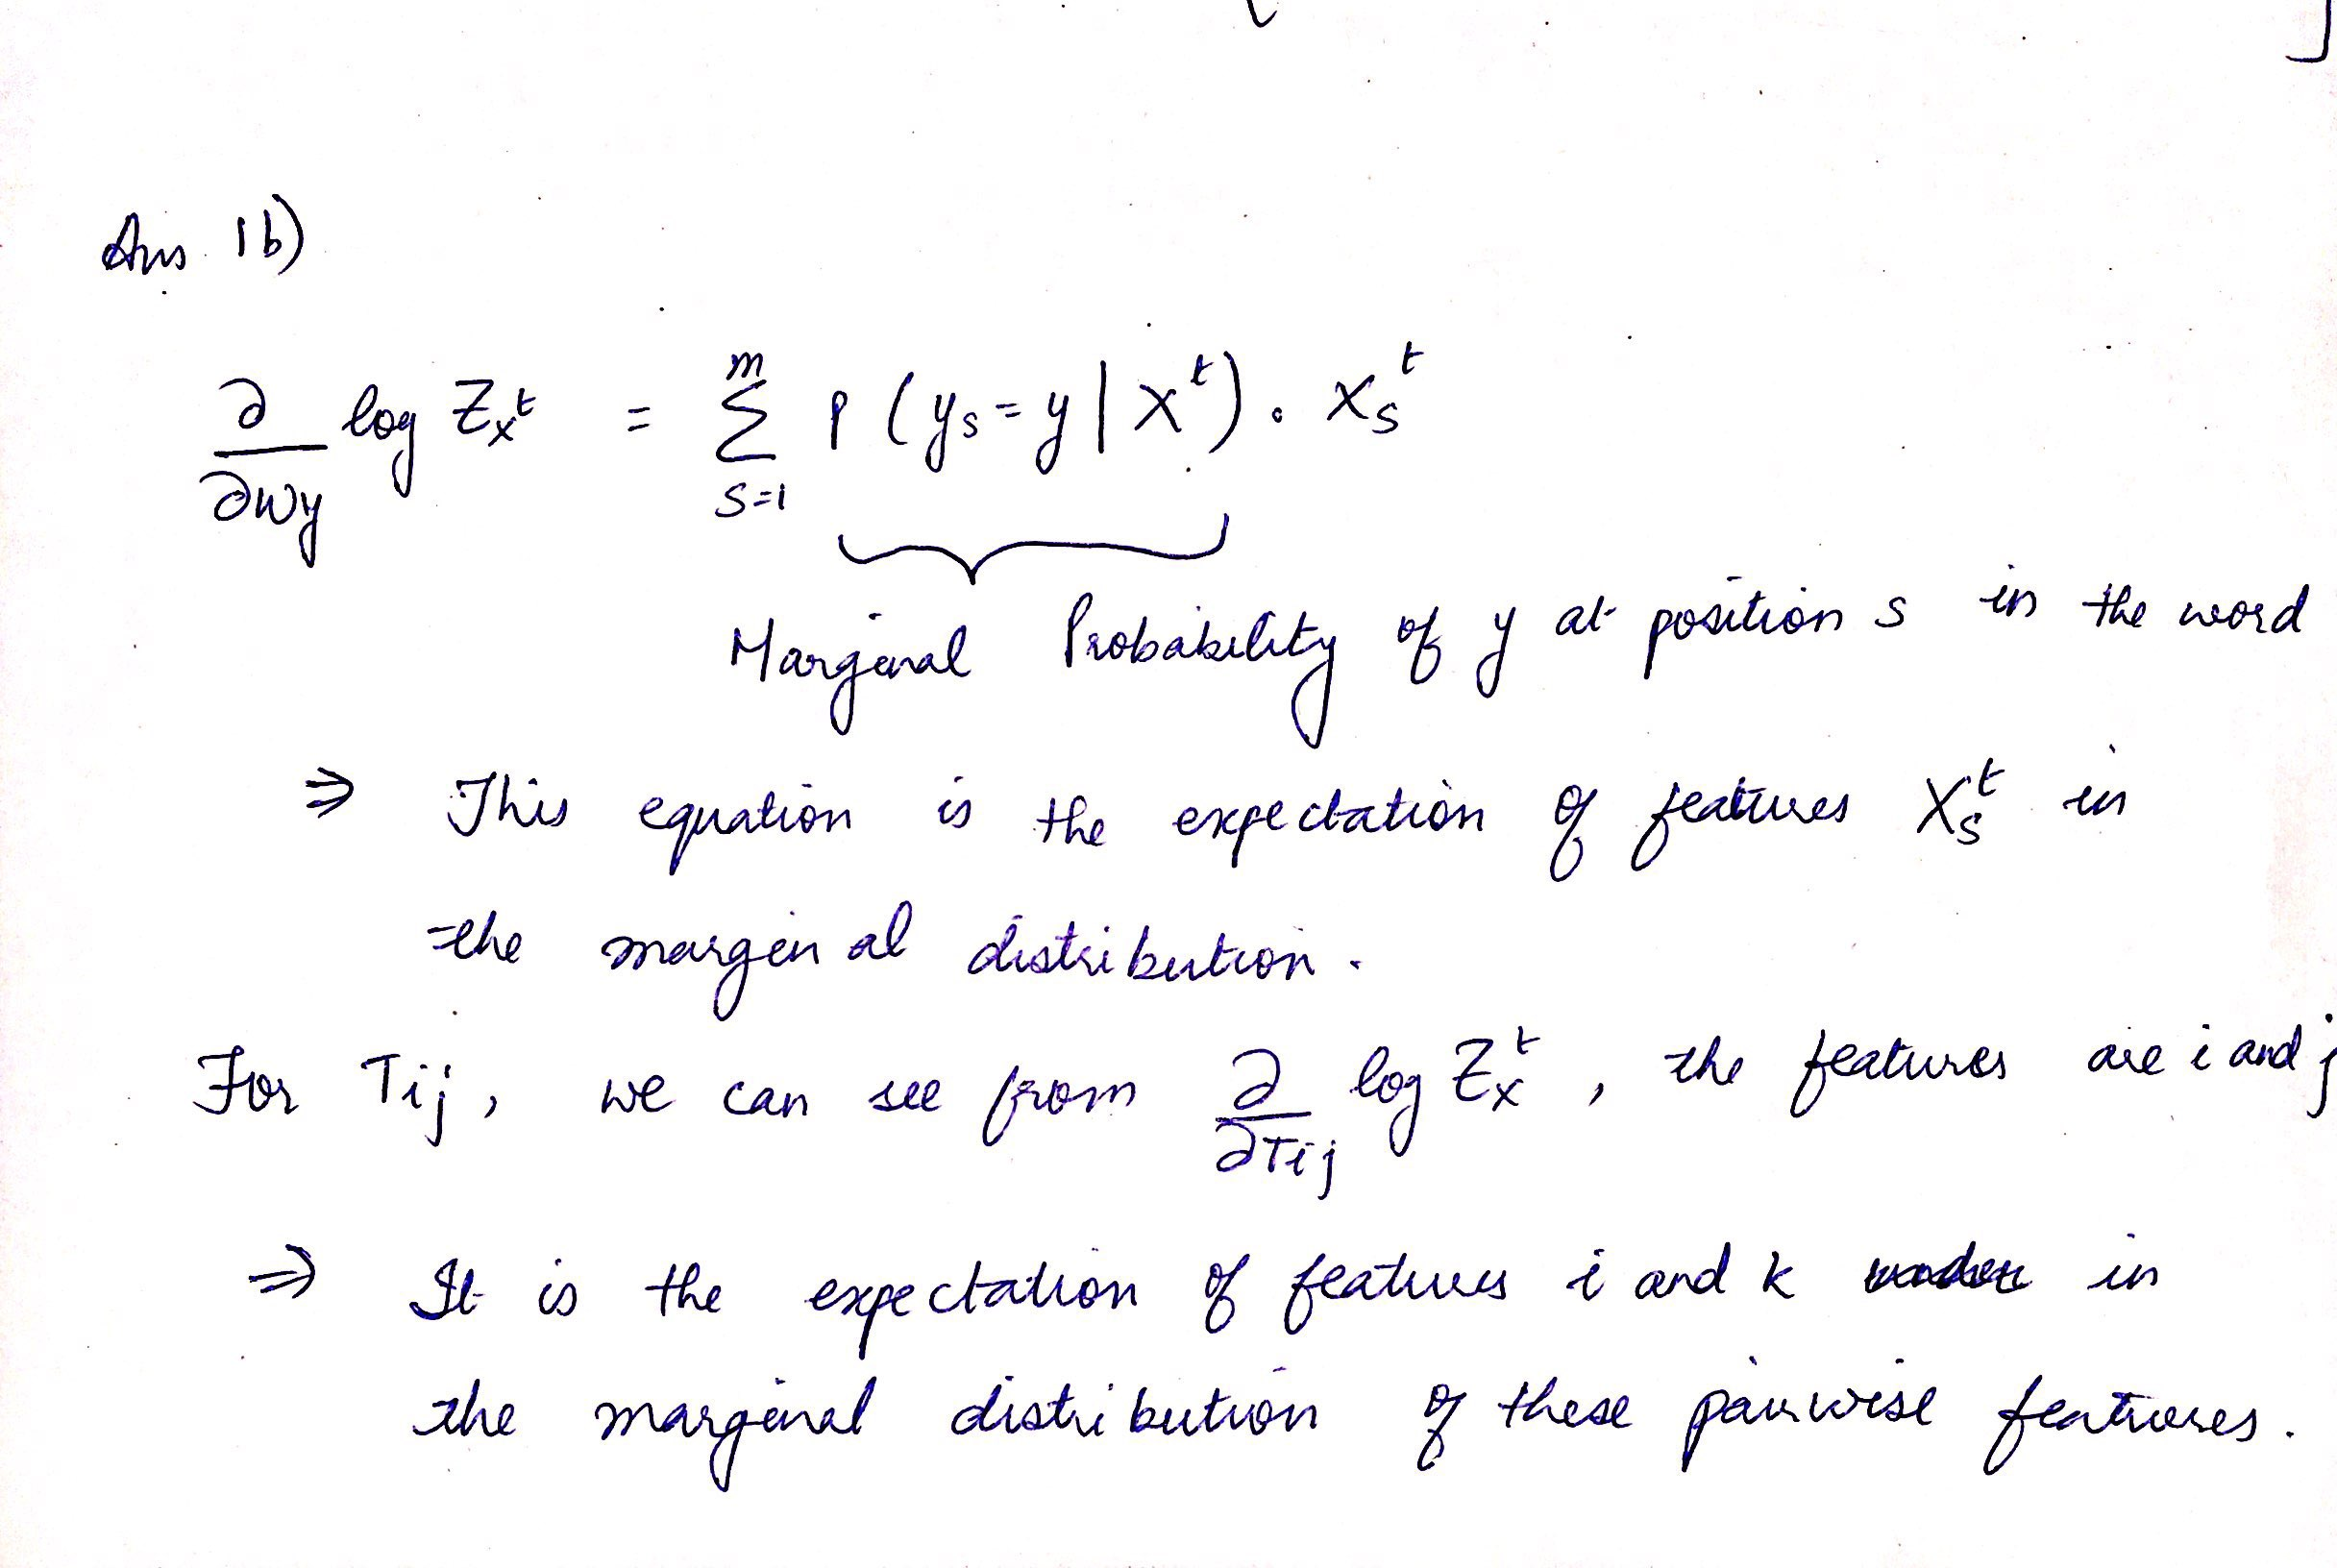 Ans 1b)
∂/∂wy log Zx^t = Σ_{s=1}^{m} P (ys = y | X^t) . Xs^t
Marginal Probability of y at position s in the word
⇒ This equation is the expectation of features Xs^t in
the marginal distribution.
For Tij, we can see from ∂/∂Tij log Zx^t, the features are i and j
⇒ It is the expectation of features i and k in
the marginal distribution of these pairwise features.